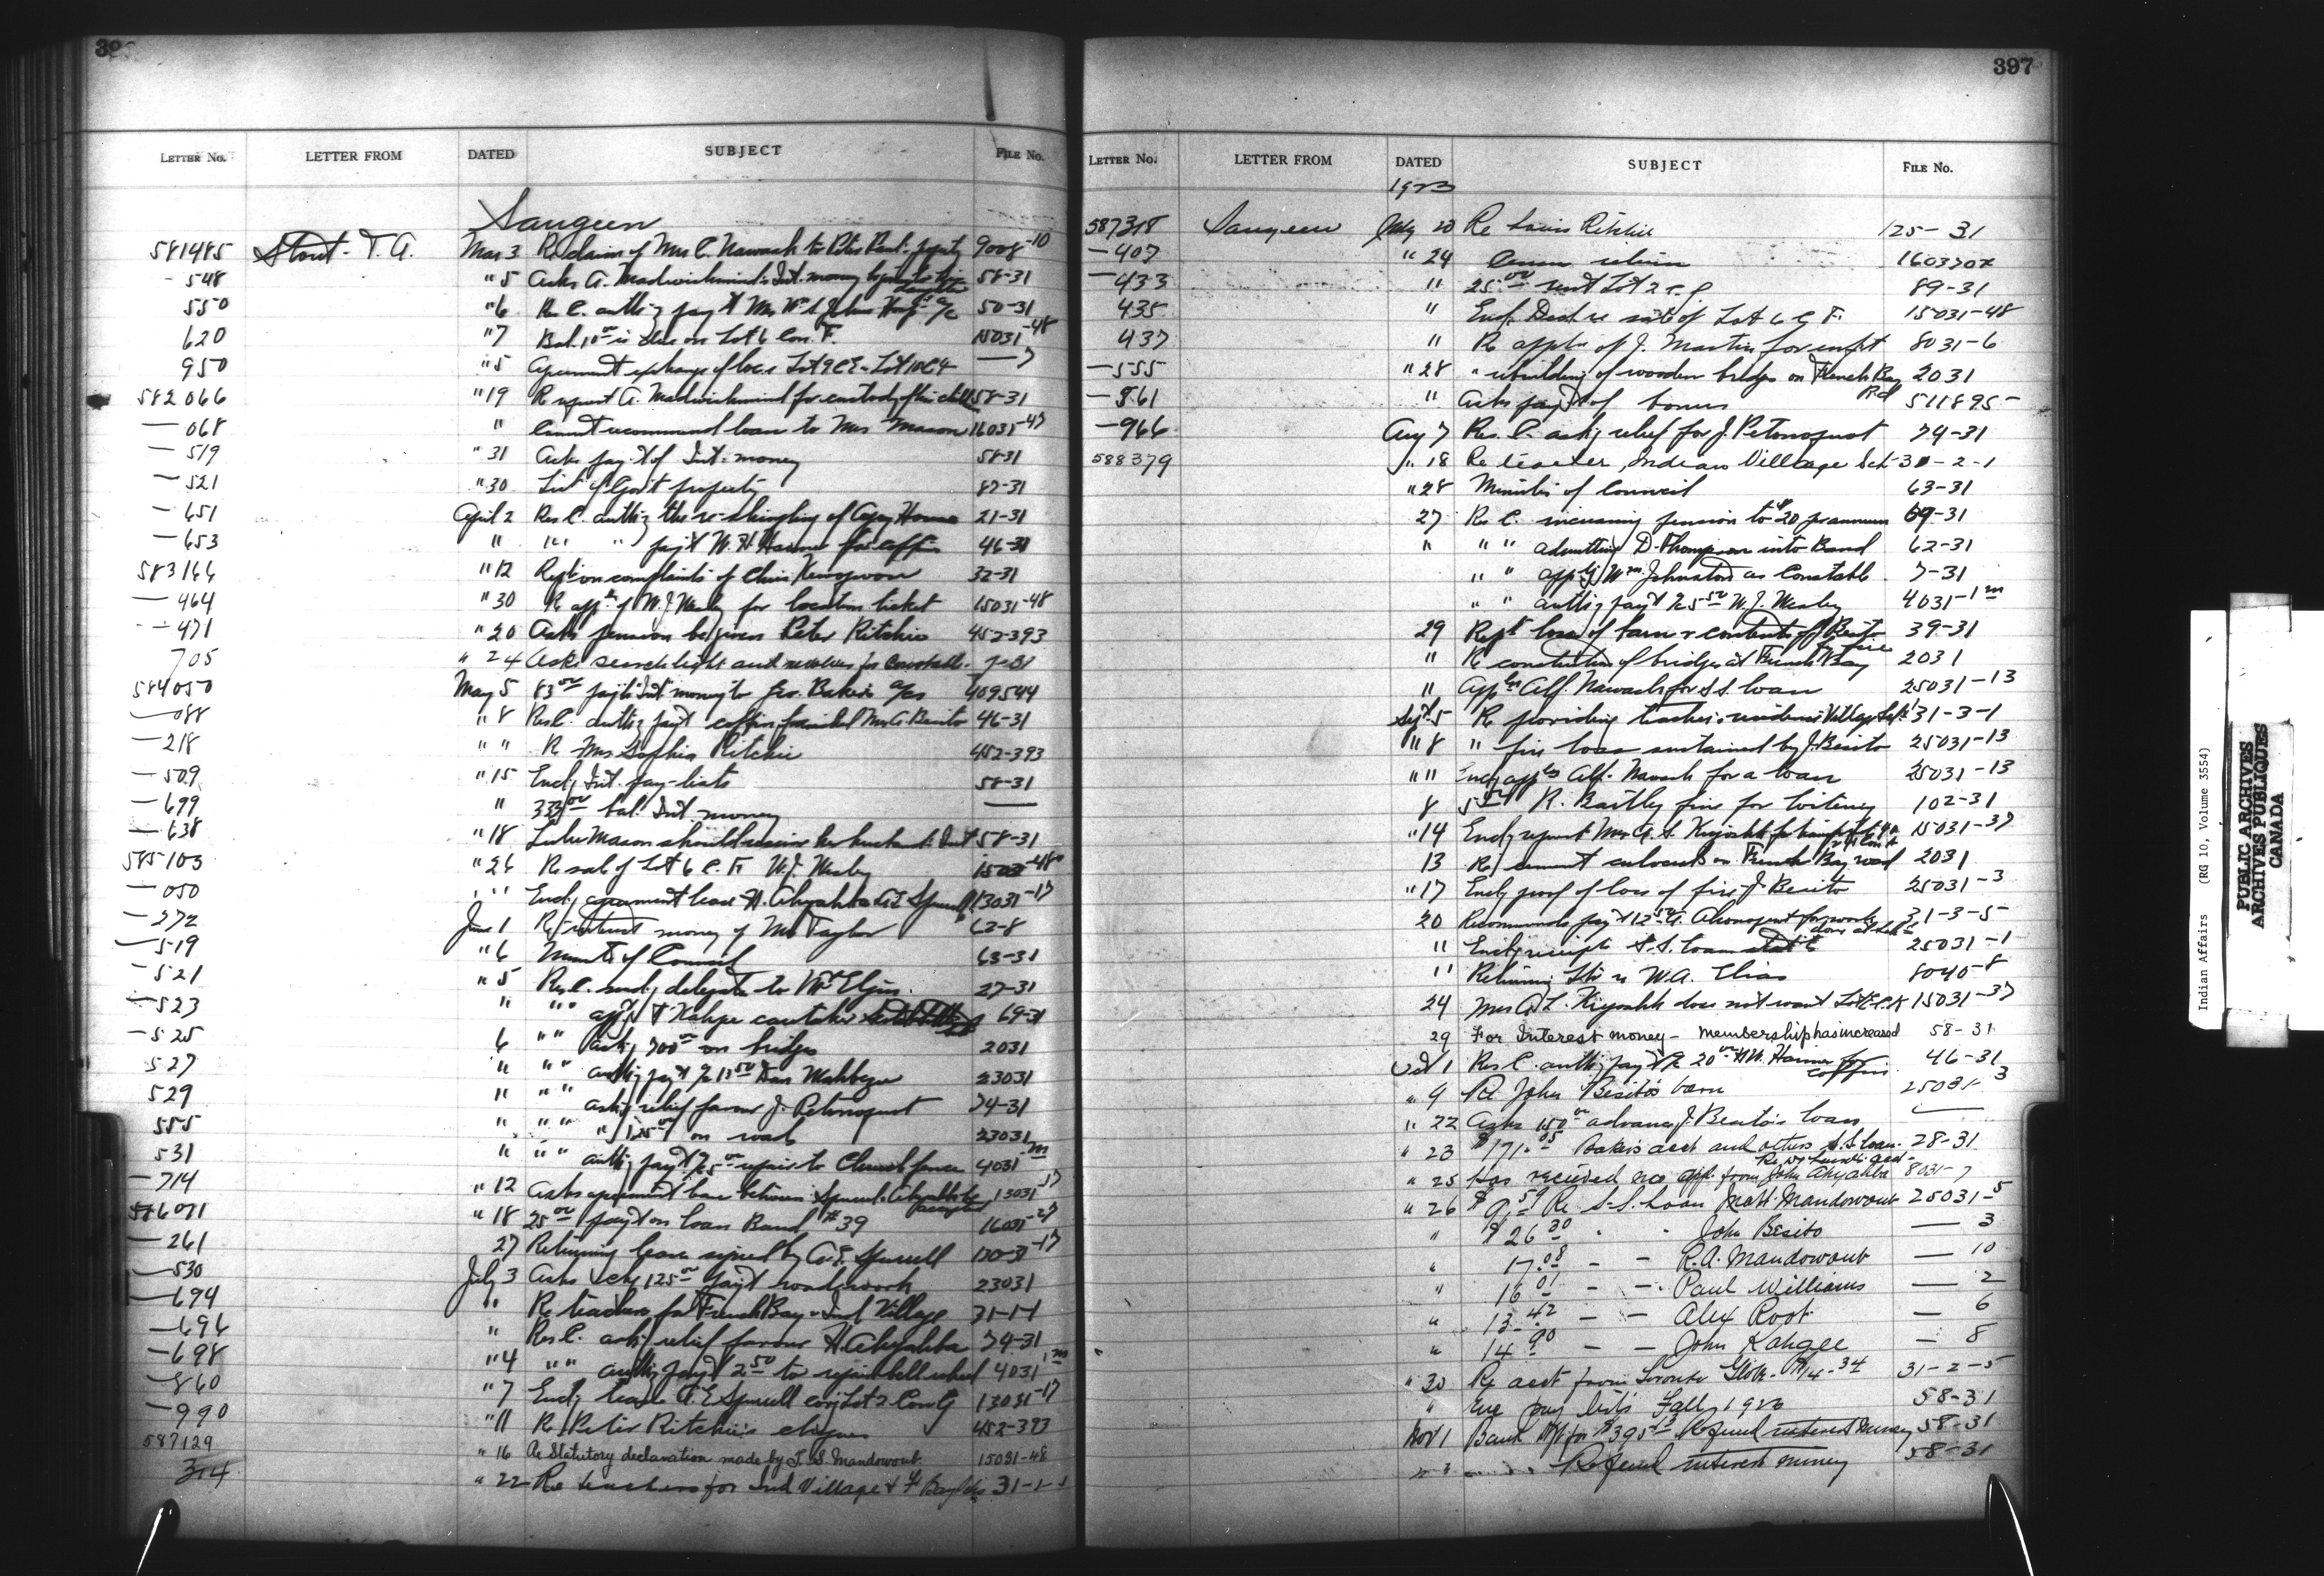 39
LETTER No. LETTER FROM DATED SUBJECT FILE No.
Saugeen
581485 Stout - T. A. Mar 3 Re claim of Mrs C. Nawash to Peter 9008-10
- 548 " 5 Asks A. Madwishmind's Int. money 58-31
550 " 6 Res C. auth'g pay't Mr 50-31
620 " 7 Bal. 1 00 is due on Lot 6 Con. F. 15031-48
950 " 5 Agreement exchange of loc.s Lot 9 C E - Lot 10 C 4 — 7
582066 " 19 Re request A. Madwishmind for custody of his child 58-31
— 068 " Cannot recommend loan to Mrs Mason 16031-47
— 519 " 31 Asks pay't of Int. money 58-31
— 521 " 30 List of Gov't property 87-31
— 651 April 2 Res C. auth'g the re-shingling of Agency House 21-31
— 653 " " " " pay't W. H. Harner for coffin 46-31
583166 " 12 Rep't on complaints of Chris 32-31
— 464 " 30 Re app. of W. J. Wesley for location ticket 15031-48
— 471 " 20 Asks pension be given Peter Ritchie 452-393
705 " 24 Asks searchlight and revolver for Constable. 7-31
584050 May 5 83 00 pay't Int money to Geo. Baker's a/cs 409544
— 088 " 8 Res C. auth'g pay't coffin Mrs A. Besito 46-31
— 218 " " Re Mrs Sophia Ritchie 452-393
— 509 " 15 Encl'g Int. pay-lists 58-31
— 699 " 333 00 bal. Int. money —
— 638 " 18 Mason should receive her husband's Int 58-31
585103 " 26 Re sale of Lot 6 C. F. W. J. Wesley 15031-48
— 050 " " Encl'g agreement lease H. Ahyahba & Spurrell 13031-17
— 272 June 1 Re interest money of Mrs Taylor 62-8
— 519 " 6 Minutes of Council 63-31
— 521 " 5 Res. C. send'g delegate to Mt Elgin. 27-31
— 523 " " " app't T Kahgee caretaker 69-31
— 525 6 " " ask'g 700 00 on bridges 2031
527 " " " auth'g pay't 13 50 Dan Wahbezee 23031
529 " " " ask'g relief favour J. Petonoquot 74-31
555 " " " " 125 00 on roads 23031
531 " " " auth'g pay't 25 00 repairs to Church fence 4031
— 714 " 12 Asks agreement lease between Spurrell & Ahyahba be accepted 13031-17
586071 " 18 25 00 pay't on loan Band # 39 16031-27
— 261 27 Returning lease signed by A. E. Spurrell 13031-17
— 530 July 3 Asks chq 125 00 pay't roadwork 23031
— 694 " Re teachers for French Bay & Ind Village 31-1-1
— 696 " Res. C. ask'g relief favour H. Ahyahba 74-31
— 698 " 4 " " auth'g pay't 2 50 to repair bell wheel 4031
— 860 " 7 Encl'g lease A. E. Spurrell Lot 2 Con G 13031-17
— 990 " 11 Re Peter Ritchie's cheques 452-393
587129 " 16 Re Statutory declaration made by J. S. Mandowoub. 15031-48
314 " 22 Re teachers for Ind Village & F. Bay 31-1-1
397
LETTER No. LETTER FROM DATED SUBJECT FILE No.
1923
587318 Saugeen July 23 Re Louis Ritchie 125-31
— 407 " 24 Census return 160370
— 433 " 25 00 rent Lot 2 89-31
435 " Encl. Deed re sale of Lot 6 C F. 15031-48
437 " Re appln of J. Martin for 8031-6
— 555 " 28 " rebuilding of wooden bridge on French Bay Rd 2031
— 861 " Asks pay't of bonus 511895
— 966 Aug 7 Res. C. ask'g relief for J. Petonoquot 74-31
588379 " 18 Re teacher, Indian Village Sch 31-2-1
" 28 Minutes of Council 63-31
27 Res C. increasing pension to $20 per annum 69-31
" " " admitting D. Thompson into Band 62-31
" " app't'g Wm. Johnston as Constable 7-31
" " auth'g pay't 25 50 W. J. Wesley 4031-1
29 Rep't loss of barn & contents of J Besito by fire 39-31
" Re construction of bridges at French Bay 2031
" Appln Alf. Nawash for S.S. loan 25031-13
Sept 5 Re providing teacher's residence Village Sch 31-3-1
" 8 " fire loss sustained by J. Besito 25031-13
" 11 Encl'g appln Alf. Nawash for a loan 25031-13
8 5 00 R. Bastley fine for loitering 102-31
" 14 Encl'g request Mrs A. L. Kiyoshk for 15031-37
13 Re cement culverts on French Bay road 2031
" 17 Encl'g proof of loss of fire J. Besito 25031-3
20 Recommends pay't 12 50 Akonoquot for work done at Sch 31-3-5
" Encl'g receipt S.S. loan 25031-1
" Returning re W. A. Elias 8040-8
24 Mrs A. L. Kiyoshk does not want Lot 15031-37
29 For Interest money - membership has increased 58-31
Oct 1 Res C. auth'g pay't 20 00 H. W. Harner for coffins 46-31
" 9 Re John Besito's barn 25031-3
" 22 Asks 150 00 advance J. Besito's loan —
" 23 $171.05 Baker's acct and others S.S. loan. 28-31
" 25 Has received no app. from John Ahyahba 8031-7
" 26 $ 9.59 Re S.S. Loan Matt. Mandowoub 25031-5
" $ 26 30 " " John Besito — 3
" 17.08 - - R. A. Mandowoub — 10
" 16 01 - - Paul Williams — 2
" 13.42 - - Alex Root — 6
" 14 90 - - John Kahgee — 8
" 30 Re acct from Toronto Globe - $14.34 31-2-5
" Eve pay lists Fall, 1923 58-31
Nov 1 Bank Dft for $395.13 Refund interest money 58-31
" " Refund interest money 58-31
Indian Affairs (RG 10, Volume 3554)
PUBLIC ARCHIVES
ARCHIVES PUBLIQUES
CANADA